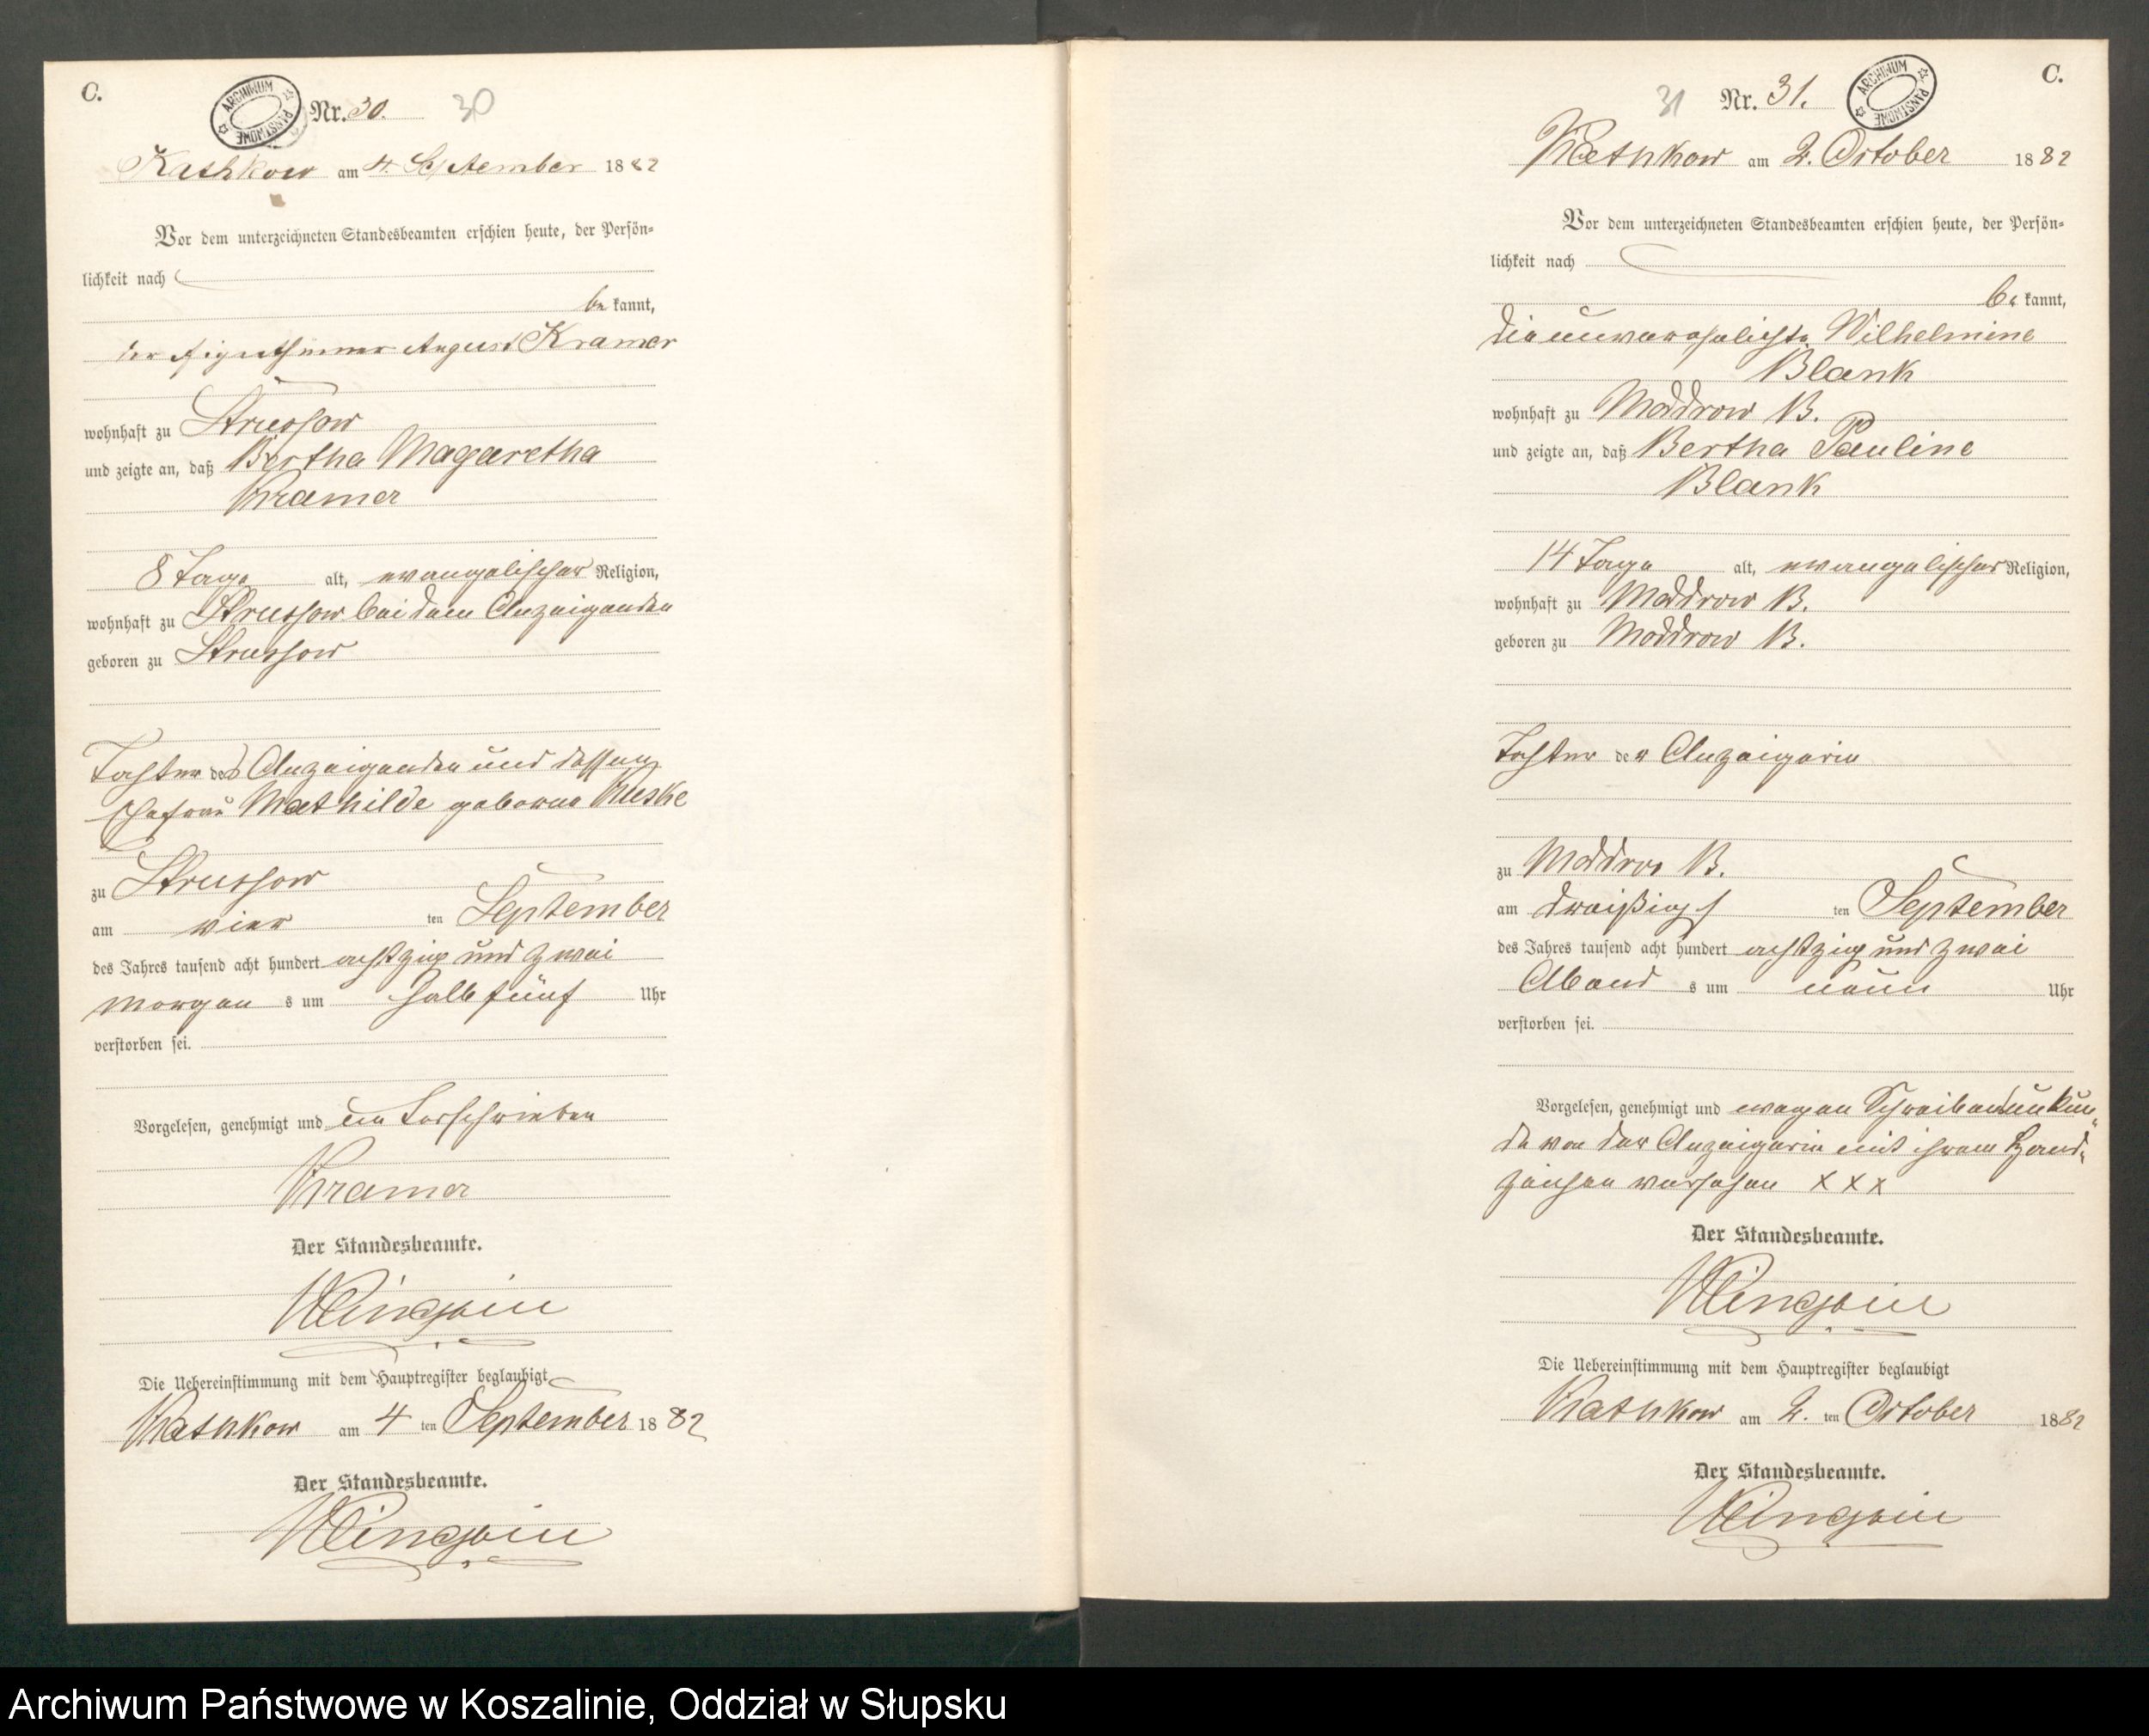 C.
ARCHIWUM PAŃSTWOWE
Nr. 30. 30
Kathkow am 4. September 1882
Vor dem unterzeichneten Standesbeamten erschien heute, der Persön-
lichkeit nach
be kannt,
der Eigenthümer August Kramer
wohnhaft zu Strussow
und zeigte an, daß Bertha Magaretha
Kramer
8 Tage alt, evangelischer Religion,
wohnhaft zu Strussow bei dem Anzeigenden
geboren zu Strussow
Tochter des Anzeigenden und dessen
Ehefrau Mathilde geborne Kuske
zu Strussow
am vier ten September
des Jahres tausend acht hundert achtzig und zwei
Morgen s um halb fünf Uhr
verstorben sei.
Vorgelesen, genehmigt und unterschrieben
Kramer
Der Standesbeamte.
Die Uebereinstimmung mit dem Hauptregister beglaubigt
Kathkow am 4 ten September 1882
Der Standesbeamte.
C.
31 Nr. 31.
ARCHIWUM PAŃSTWOWE
Kathkow am 2. October 1882
Vor dem unterzeichneten Standesbeamten erschien heute, der Persön-
lichkeit nach
be kannt,
die unverehelichte Wilhelmine
Blank
wohnhaft zu Moddrow B.
und zeigte an, daß Bertha Pauline
Blank
14 Tage alt, evangelischer Religion,
wohnhaft zu Moddrow B.
geboren zu Moddrow B.
Tochter der Anzeigerin
zu Moddrow B.
am dreißigs ten September
des Jahres tausend acht hundert achtzig und zwei
Abend s um neun Uhr
verstorben sei.
Vorgelesen, genehmigt und wegen Schreibensunkun-
de von der Anzeigerin mit ihrem Hand-
zeichen versehen x x x
Der Standesbeamte.
Die Uebereinstimmung mit dem Hauptregister beglaubigt
Kathkow am 2. ten October 1882
Der Standesbeamte.
Archiwum Państwowe w Koszalinie, Oddział w Słupsku